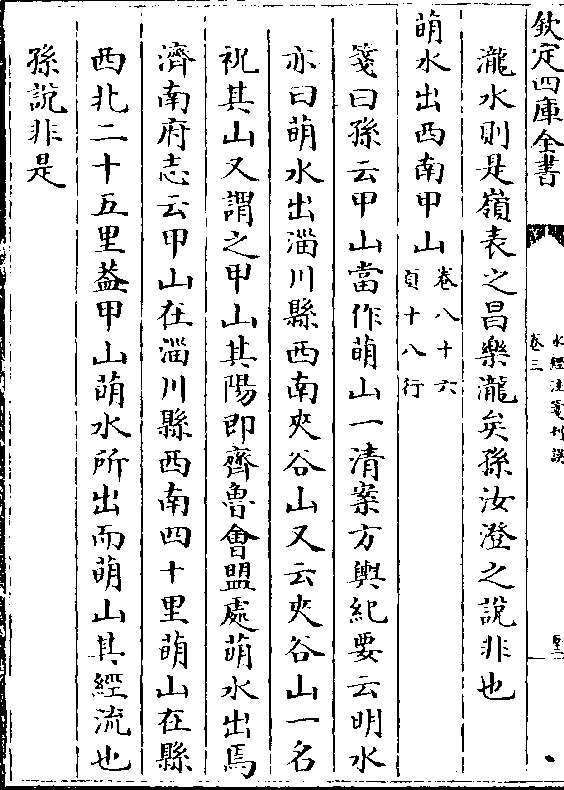 欽定四庫全書
水經注箋刊誤
卷三
瀧水則是嶺表之昌樂瀧矣孫汝澄之說非也
萌水出西南甲山卷八十六
頁十八行
箋曰孫云甲山當作萌山一清案方輿紀要云明水
亦曰萌水出淄川縣西南夾谷山又云夾谷山一名
祝其山又謂之甲山其陽即齊魯會盟處萌水出焉
濟南府志云甲山在淄川縣西南四十里萌山在縣
西北二十五里葢甲山萌水所出而萌山其經流也
孫說非是